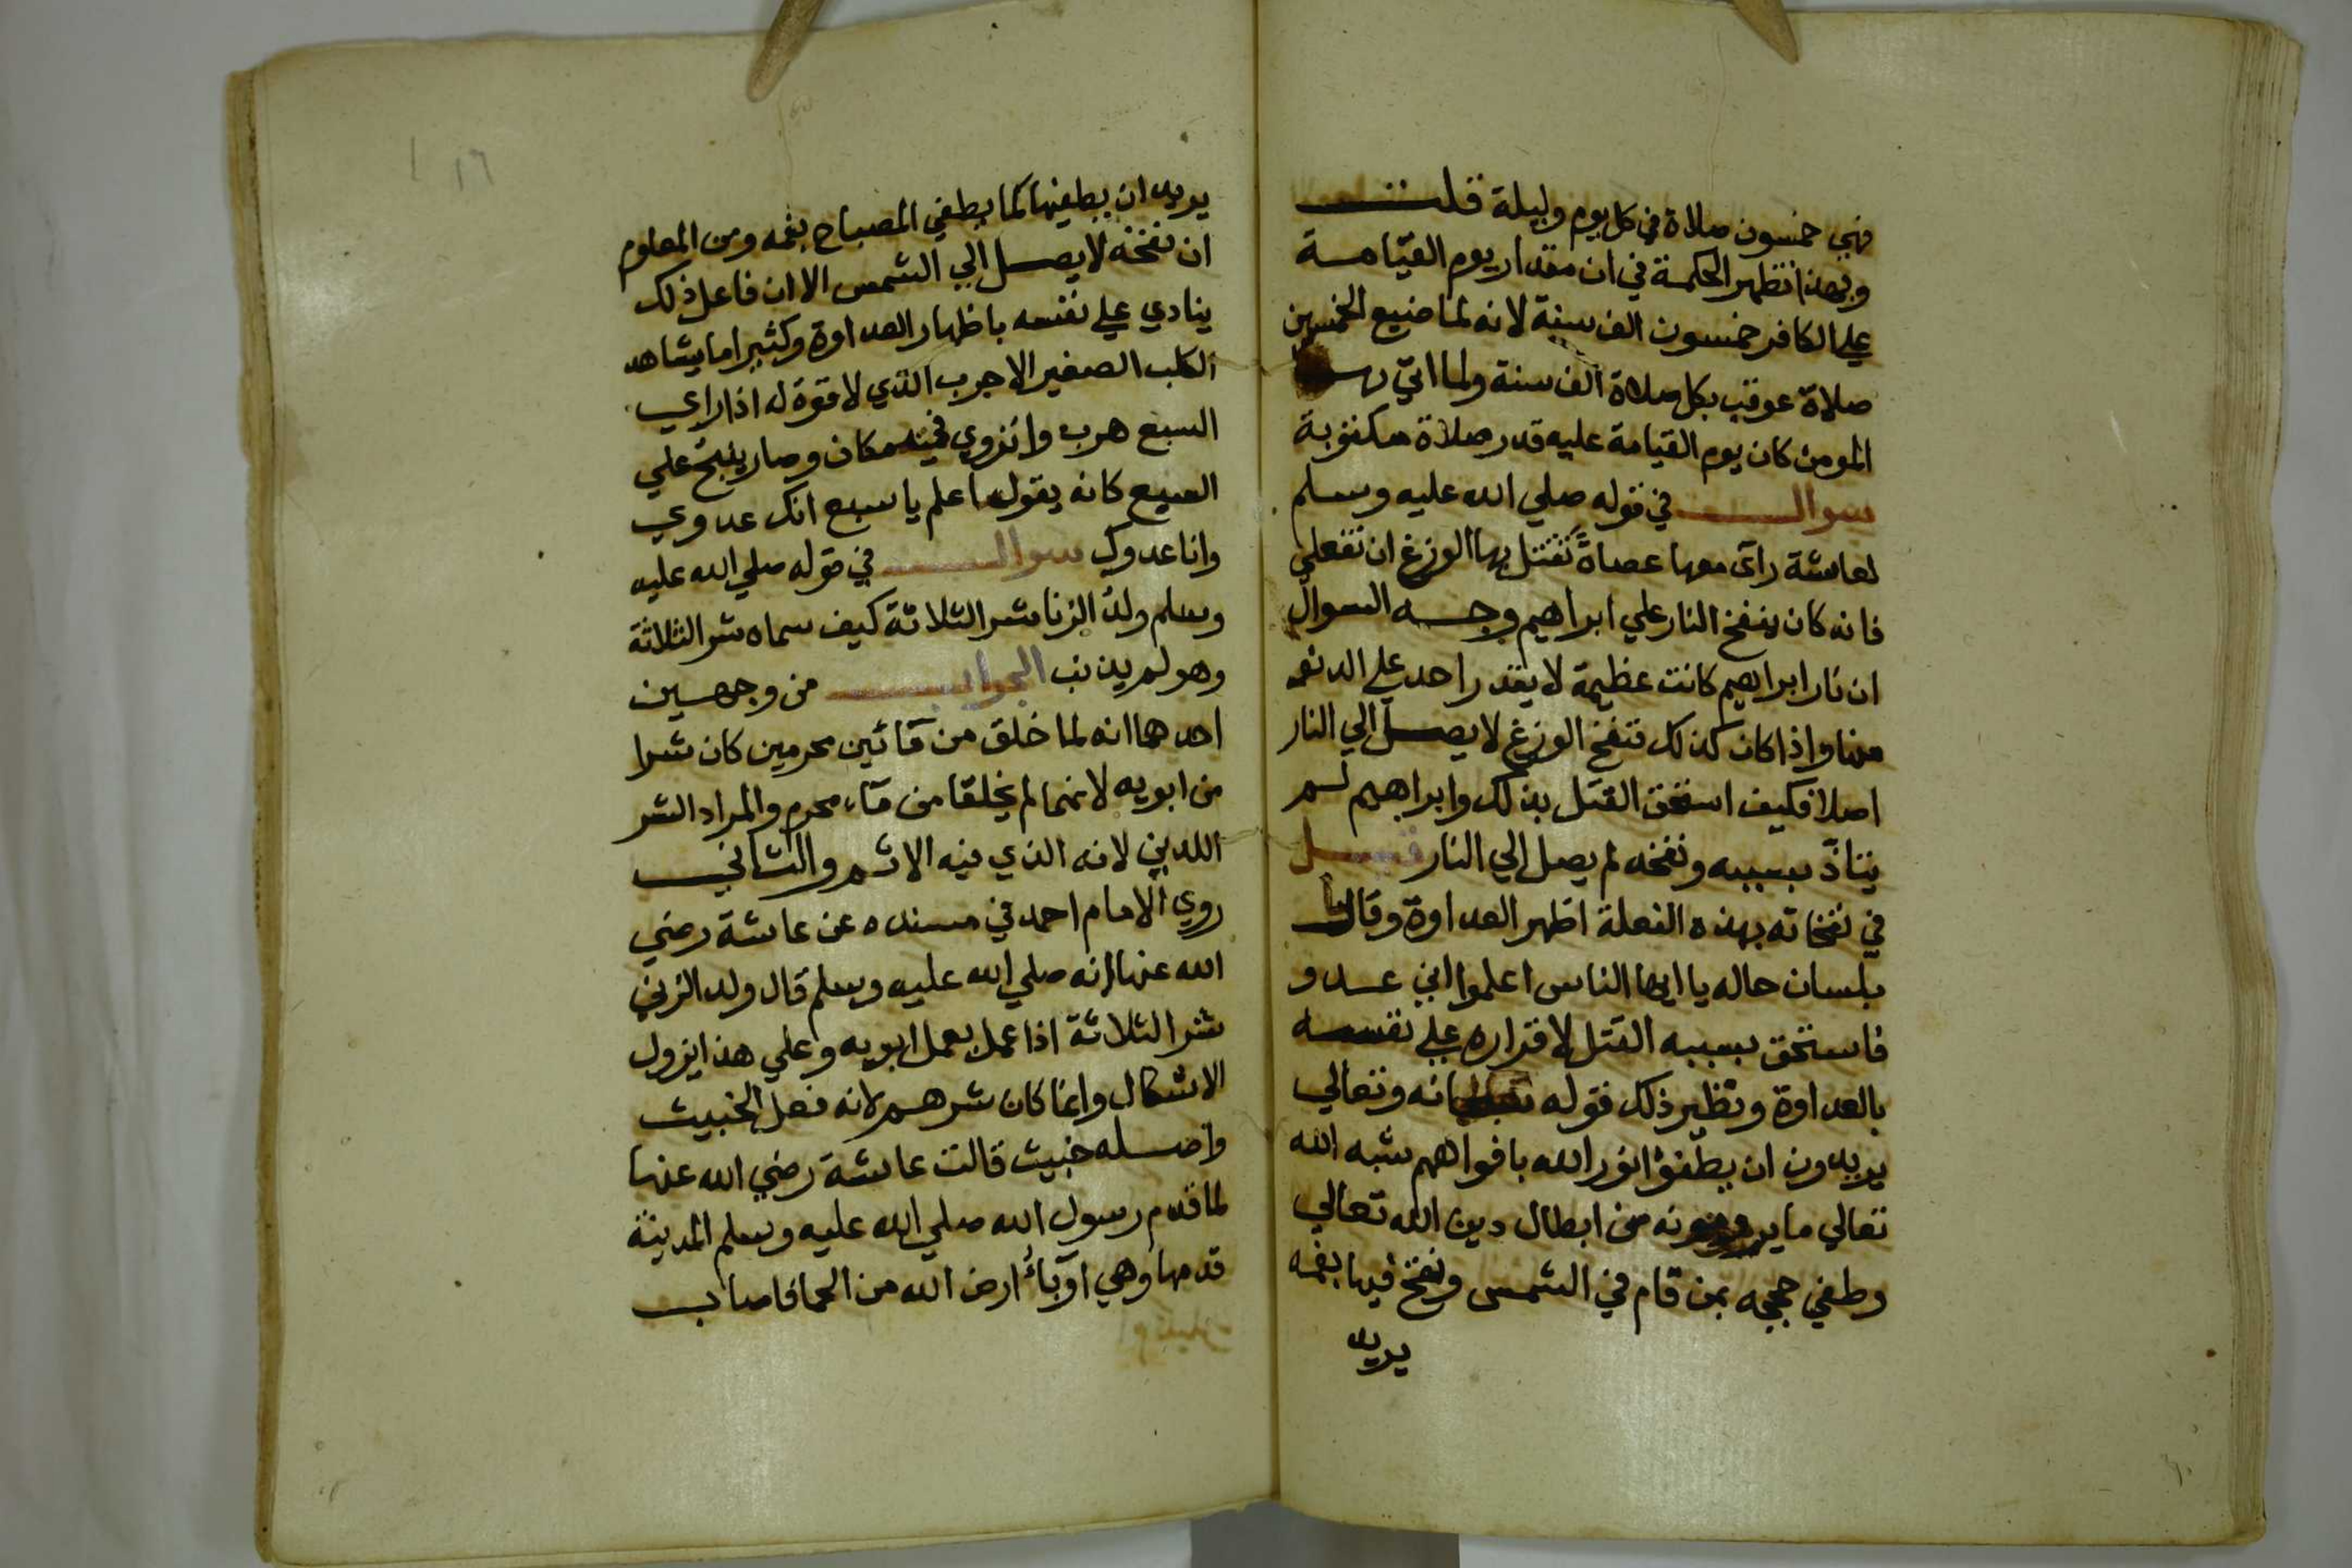 فهي خمسون صلاة في كل يوم وليلة قلت
وبهذا تظهر الحكمة في ان مقدار يوم القيامة
علي الكافر خمسون الف سنة لانه لما ضيع الخمسين
صلاة عوقب بكل صلاة الف سنة ولما اتي بها
المومن كان يوم القيامة عليه قدر صلاة مكتوبة
سوال في قوله صلي الله عليه وسلم
لعائشة رآى معها عصاةً تقتل بها الوزغ ان تفعلي
فانه كان ينفخ النار علي ابراهيم وجه السوال
ان نار ابراهيم كانت عظيمة لا يقدر احد علي الدنو
منها واذا كان كذلك فنفخ الوزغ لا يصل الي النار
اصلا فكيف استحق القتل بذلك وابراهيم لم
يتاذّ بسببه ونفخه لم يصل الي النار قيل
في نفخاته بهذه الفعلة اظهر العداوة وقال
بلسان حاله يا ايها الناس اعلموا اني عدو
فاستحق بسببه القتل لاقراره علي نفسه
بالعداوة ونظير ذلك قوله سبحانه وتعالي
يريدون ان يطفؤا نور الله بافواههم شبه الله
تعالي ما يرومونه من ابطال دين الله تعالي
وطفي حججه بمن قام في الشمس ونفخ فيها بفمه
يريد
١٦
يريد ان يطفيها كما يطفي المصباح بفمه ومن المعلوم
ان نفخة لا يصل الي الشمس الا ان فاعل ذلك
ينادي علي نفسه باظهار العداوة وكثيرا ما يشاهد
الكلب الصغير الاجرب الذي لا قوة له اذا راي
السبع هرب وانزوي في مكان وصار ينبح علي
السبع كانه يقول اعلم يا سبع انك عدوي
وانا عدوك سوال في قوله صلي الله عليه
وسلم ولد الزنا شر الثلاثة كيف سماه شر الثلاثة
وهو لم يذنب الجواب من وجهين
احدهما انه لما خلق من مآئين محرمين كان شرا
من ابويه لانهما لم يخلقا من مآء محرم والمراد الشر
اللديني لانه الذي فيه الاثم والثاني
روي الامام احمد في مسنده عن عائشة رضي
الله عنها انه صلي الله عليه وسلم قال ولد الزني
شر الثلاثة اذا عمل بعمل ابويه وعلي هذا يزول
الاشكال وانما كان شرهم لانه فعل الخبيث
واصله خبيث قالت عائشة رضي الله عنها
لما قدم رسول الله صلي الله عليه وسلم المدينة
قدمها وهي اوبآءُ ارض الله من الحما فاصاب